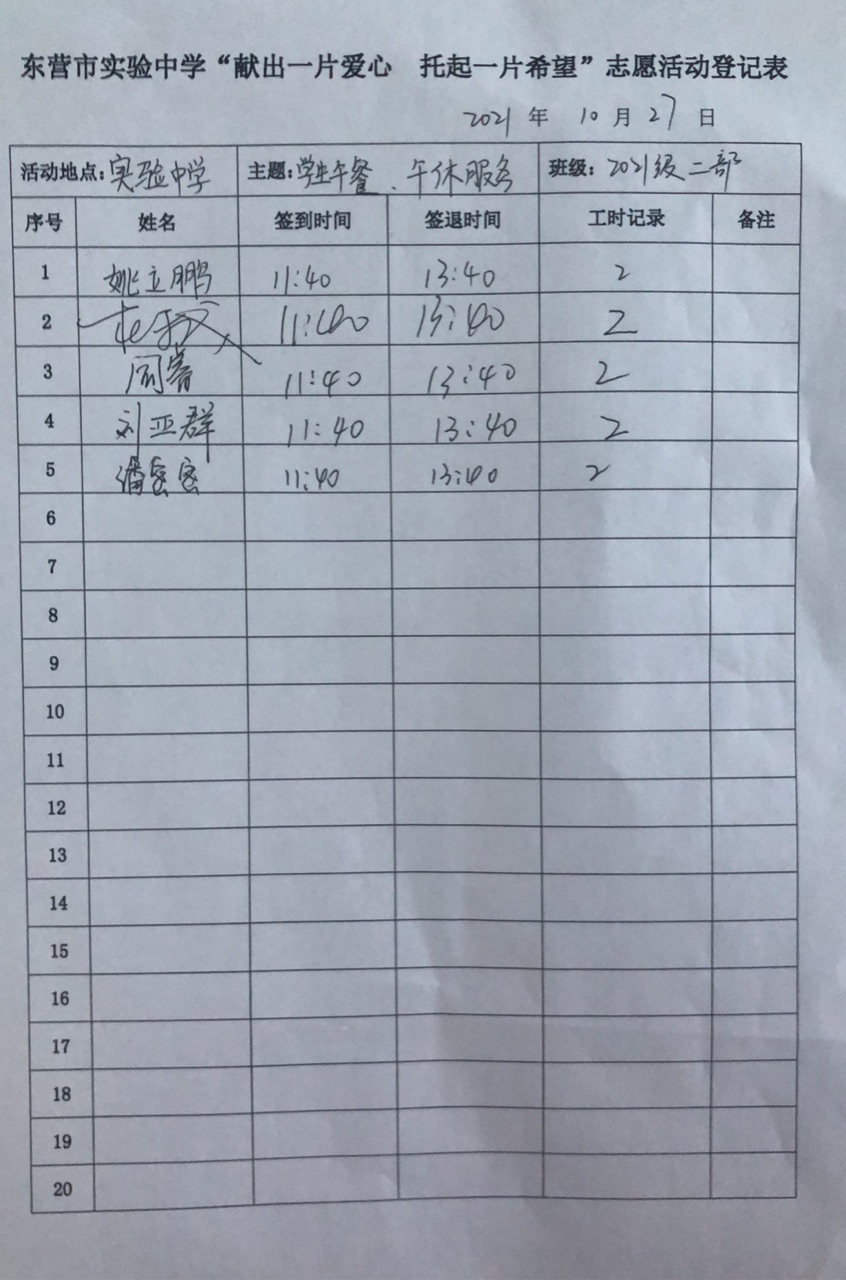 东营市实验中学“献出一片爱心 托起一片希望”志愿活动登记表
2021 年 10 月 27 日
活动地点:实验中学 主题:学生午餐、午休服务 班级:2021级二部
序号 姓名 签到时间 签退时间 工时记录 备注
1 姚立鹏 11:40 13:40 2
2 11:40 13:40 2
3 周睿 11:40 13:40 2
4 刘亚群 11:40 13:40 2
5 潘密密 11:40 13:40 2
6
7
8
9
10
11
12
13
14
15
16
17
18
19
20